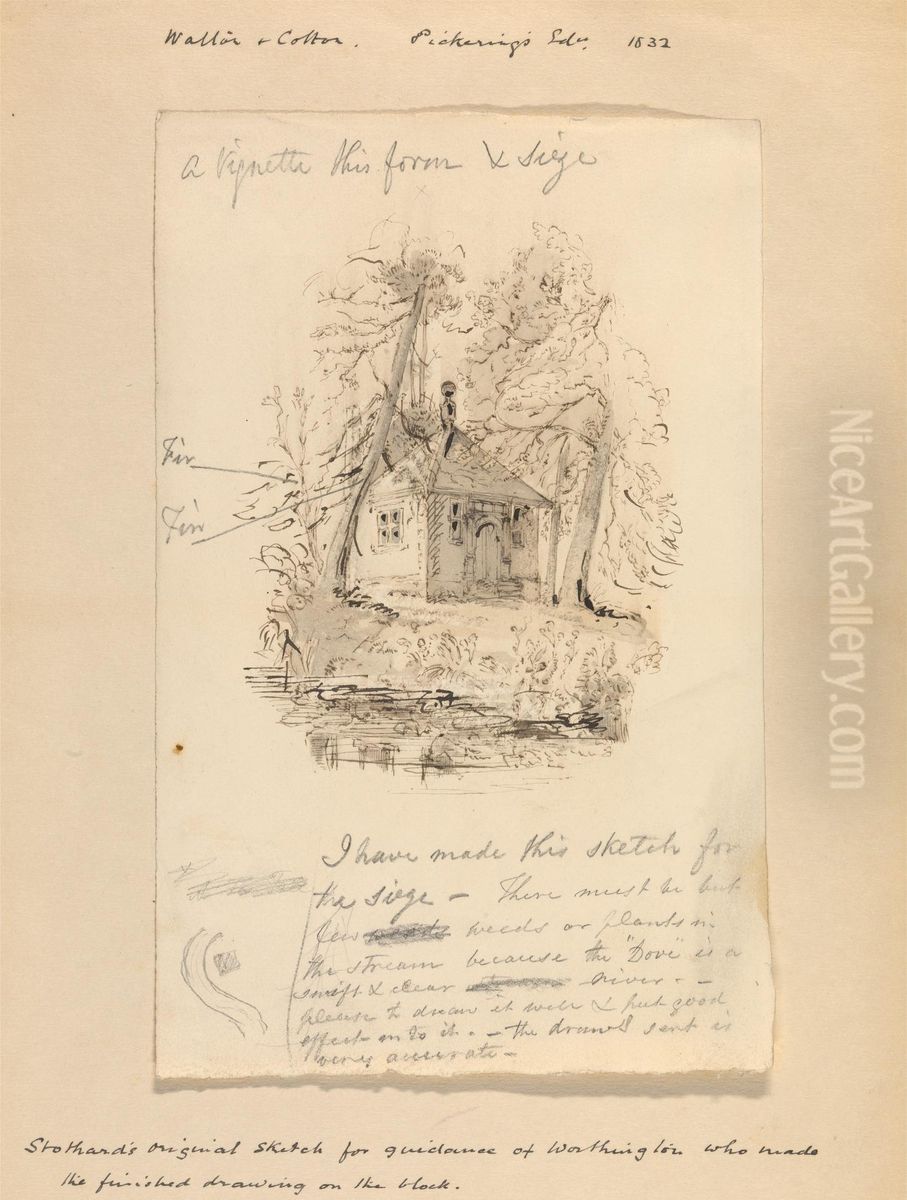 Walton & Cotton. Pickering's Edn. 1832
A Vignette this form & siege
Fir
Fir
I have made this sketch for
the siege – There must be but
few weeds or plants in
the stream because the "Dove" is a
swift & clear river. –
please to draw it well & put good
effect into it. – the drawg sent is
very accurate –
Stothard's original sketch for guidance of Worthington who made
the finished drawing on the block.
NiceArtGallery.com